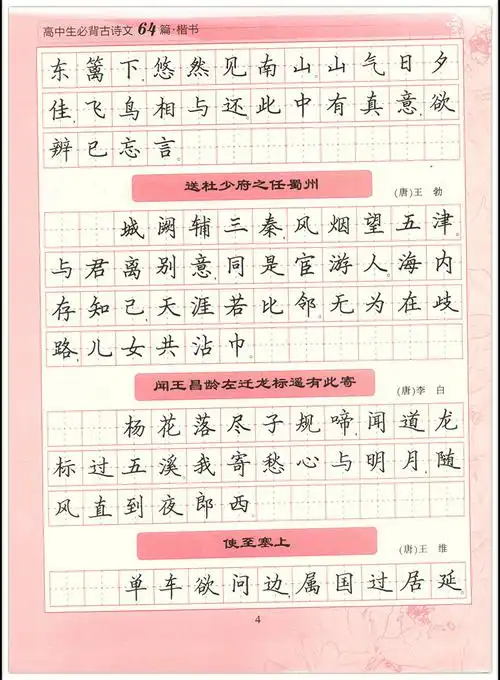 高中生必背古诗文64篇·楷书
东篱下,悠然见南山。山气日夕
佳,飞鸟相与还。此中有真意,欲
辨已忘言。
送杜少府之任蜀州
(唐)王 勃
城阙辅三秦,风烟望五津。
与君离别意,同是宦游人。海内
存知己,天涯若比邻。无为在歧
路,儿女共沾巾。
闻王昌龄左迁龙标遥有此寄
(唐)李 白
杨花落尽子规啼,闻道龙
标过五溪。我寄愁心与明月,随
风直到夜郎西。
使至塞上
(唐)王 维
单车欲问边,属国过居延。
4